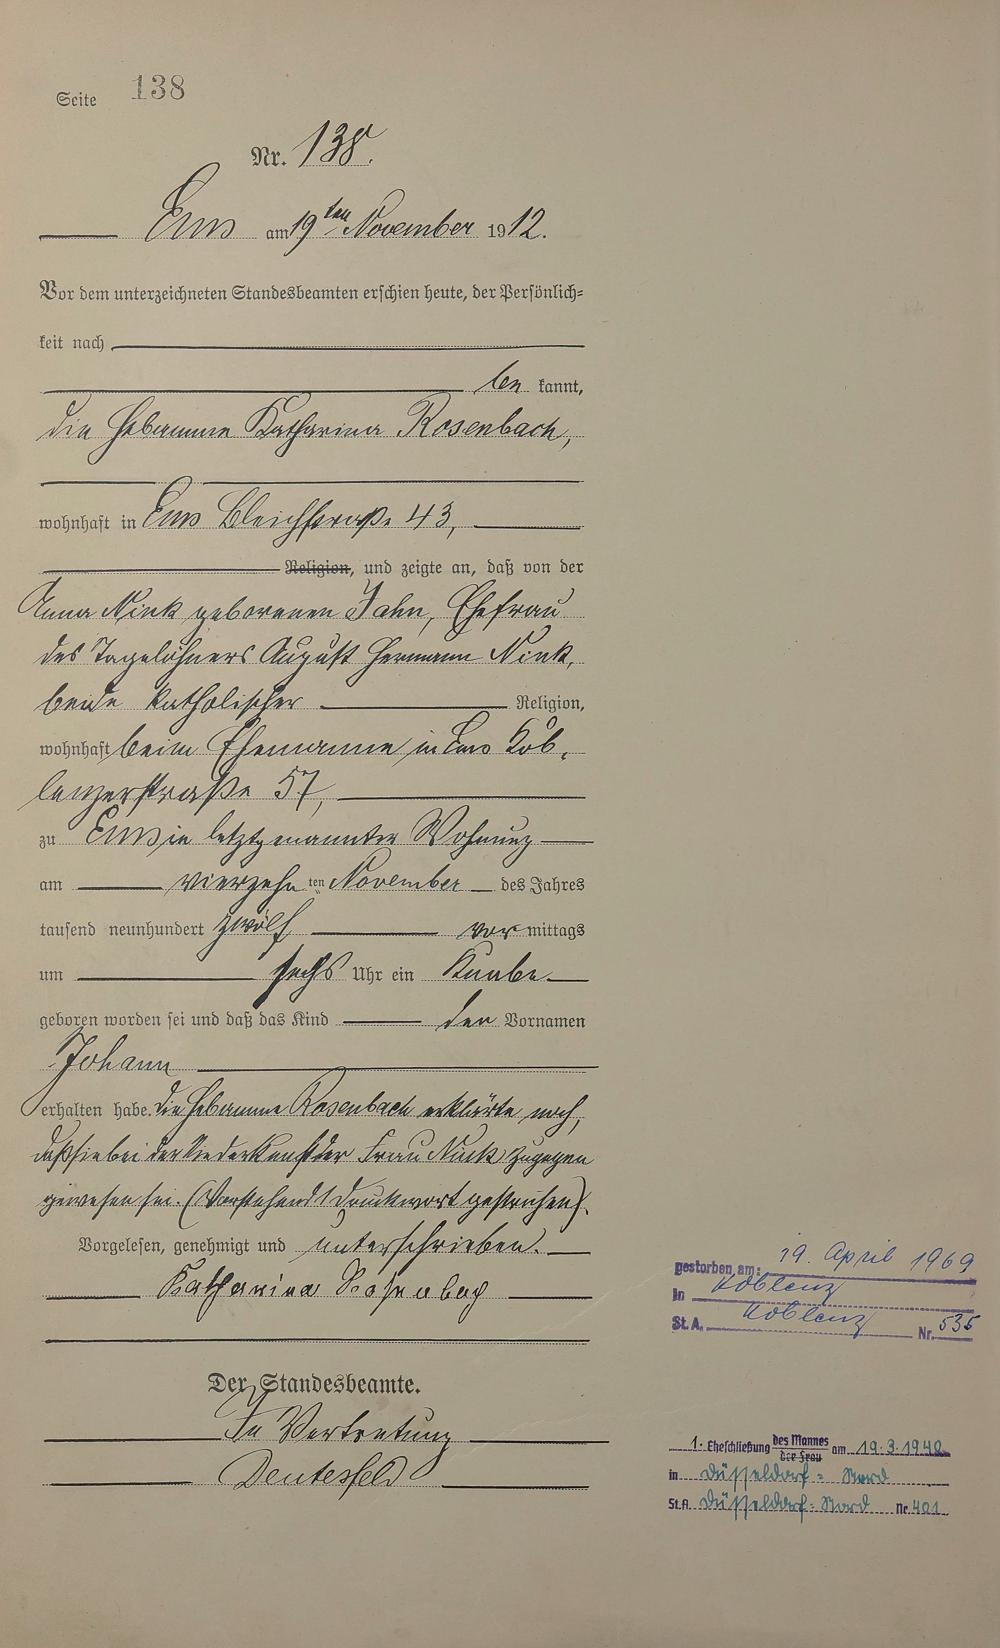 Seite 138
Nr. 138.
Ems am 19ten November 1912.
Vor dem unterzeichneten Standesbeamten erschien heute, der Persönlich-
keit nach
be kannt,
die Hebamme Katharina Rosenbach,
wohnhaft in Ems Bleichstraße 43,
Religion, und zeigte an, daß von der
Anna Nink geborenen Jahn, Ehefrau
des Tagelöhners August Hermann Nink,
beide katholischer Religion,
wohnhaft beim Ehemanne in Ems Kob-
lenzerstraße 57,
zu Ems in letztgenannter Wohnung
am vierzehn ten November des Jahres
tausend neunhundert zwölf vor mittags
um sechs Uhr ein Knabe
geboren worden sei und daß das Kind den Vornamen
Johann
erhalten habe. Die Hebamme Rosenbach erklärte noch,
daß sie bei der Niederkunft der Frau Nink zugegen
gewesen sei. (Vorstehend 1 Druckwort gestrichen).
Vorgelesen, genehmigt und unterschrieben.
Katharina Rosenbach
Der Standesbeamte.
In Vertretung
Deutesfeld
gestorben am: 19. April 1969
in Koblenz
St.A. Koblenz Nr. 535
1. Eheschließung des Mannes am 19.3.1940
der Frau
in Düsseldorf-Nord
St.A. Düsseldorf-Nord Nr. 401